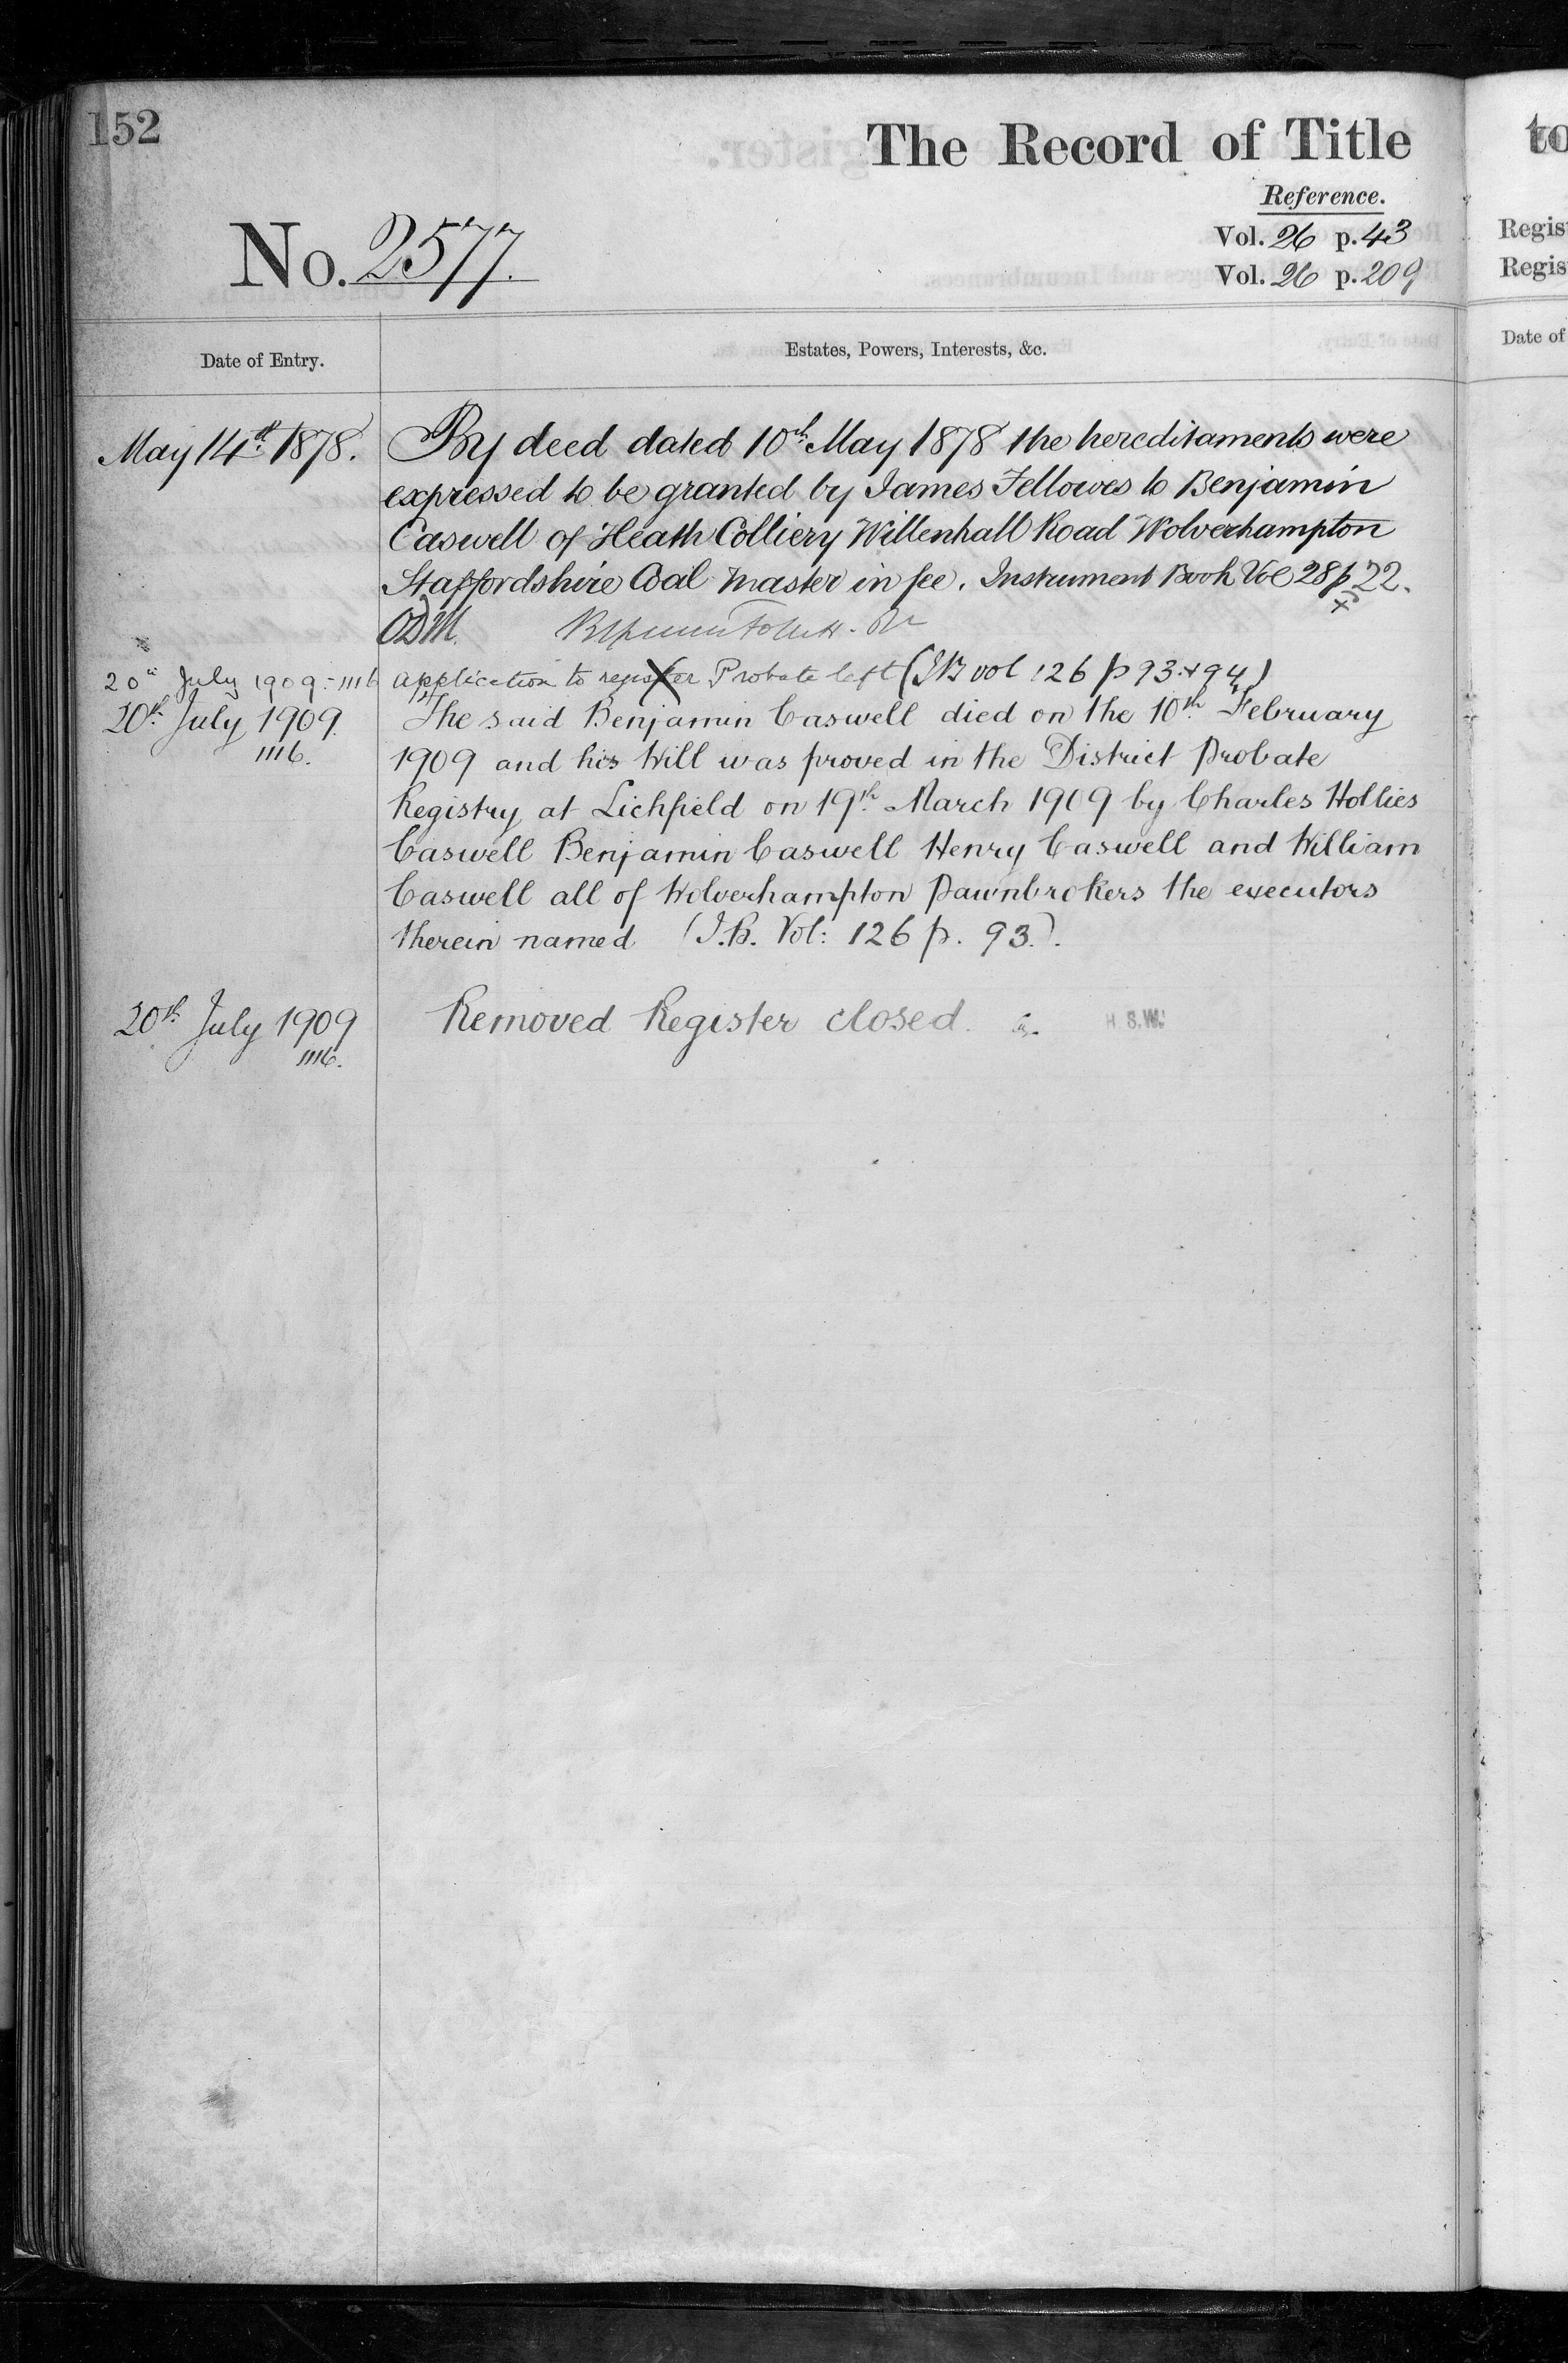 152
The Record of Title
Reference.
No. 2577.
Vol. 26 p. 43
Vol. 26 p. 209
Date of Entry.
Estates, Powers, Interests, &c.
May 14th 1878.
By deed dated 10th May 1878 the hereditaments were
expressed to be granted by James Fellowes to Benjamin
Caswell of Heath Colliery Willenhall Road Wolverhampton
Staffordshire Coal Master in fee. Instrument Book Vol 28 p 22.
20th July 1909 - 1116
application to register Probate left (I B vol 126 p 93 + 94)
20th July 1909
1116.
The said Benjamin Caswell died on the 10th February
1909 and his Will was proved in the District Probate
Registry at Lichfield on 19th March 1909 by Charles Hollies
Caswell Benjamin Caswell Henry Caswell and William
Caswell all of Wolverhampton Pawnbrokers the executors
therein named (I.B. Vol: 126 p. 93.).
20th July 1909
1116.
Removed Register closed. H.S.W.
to
Regis
Regis
Date of